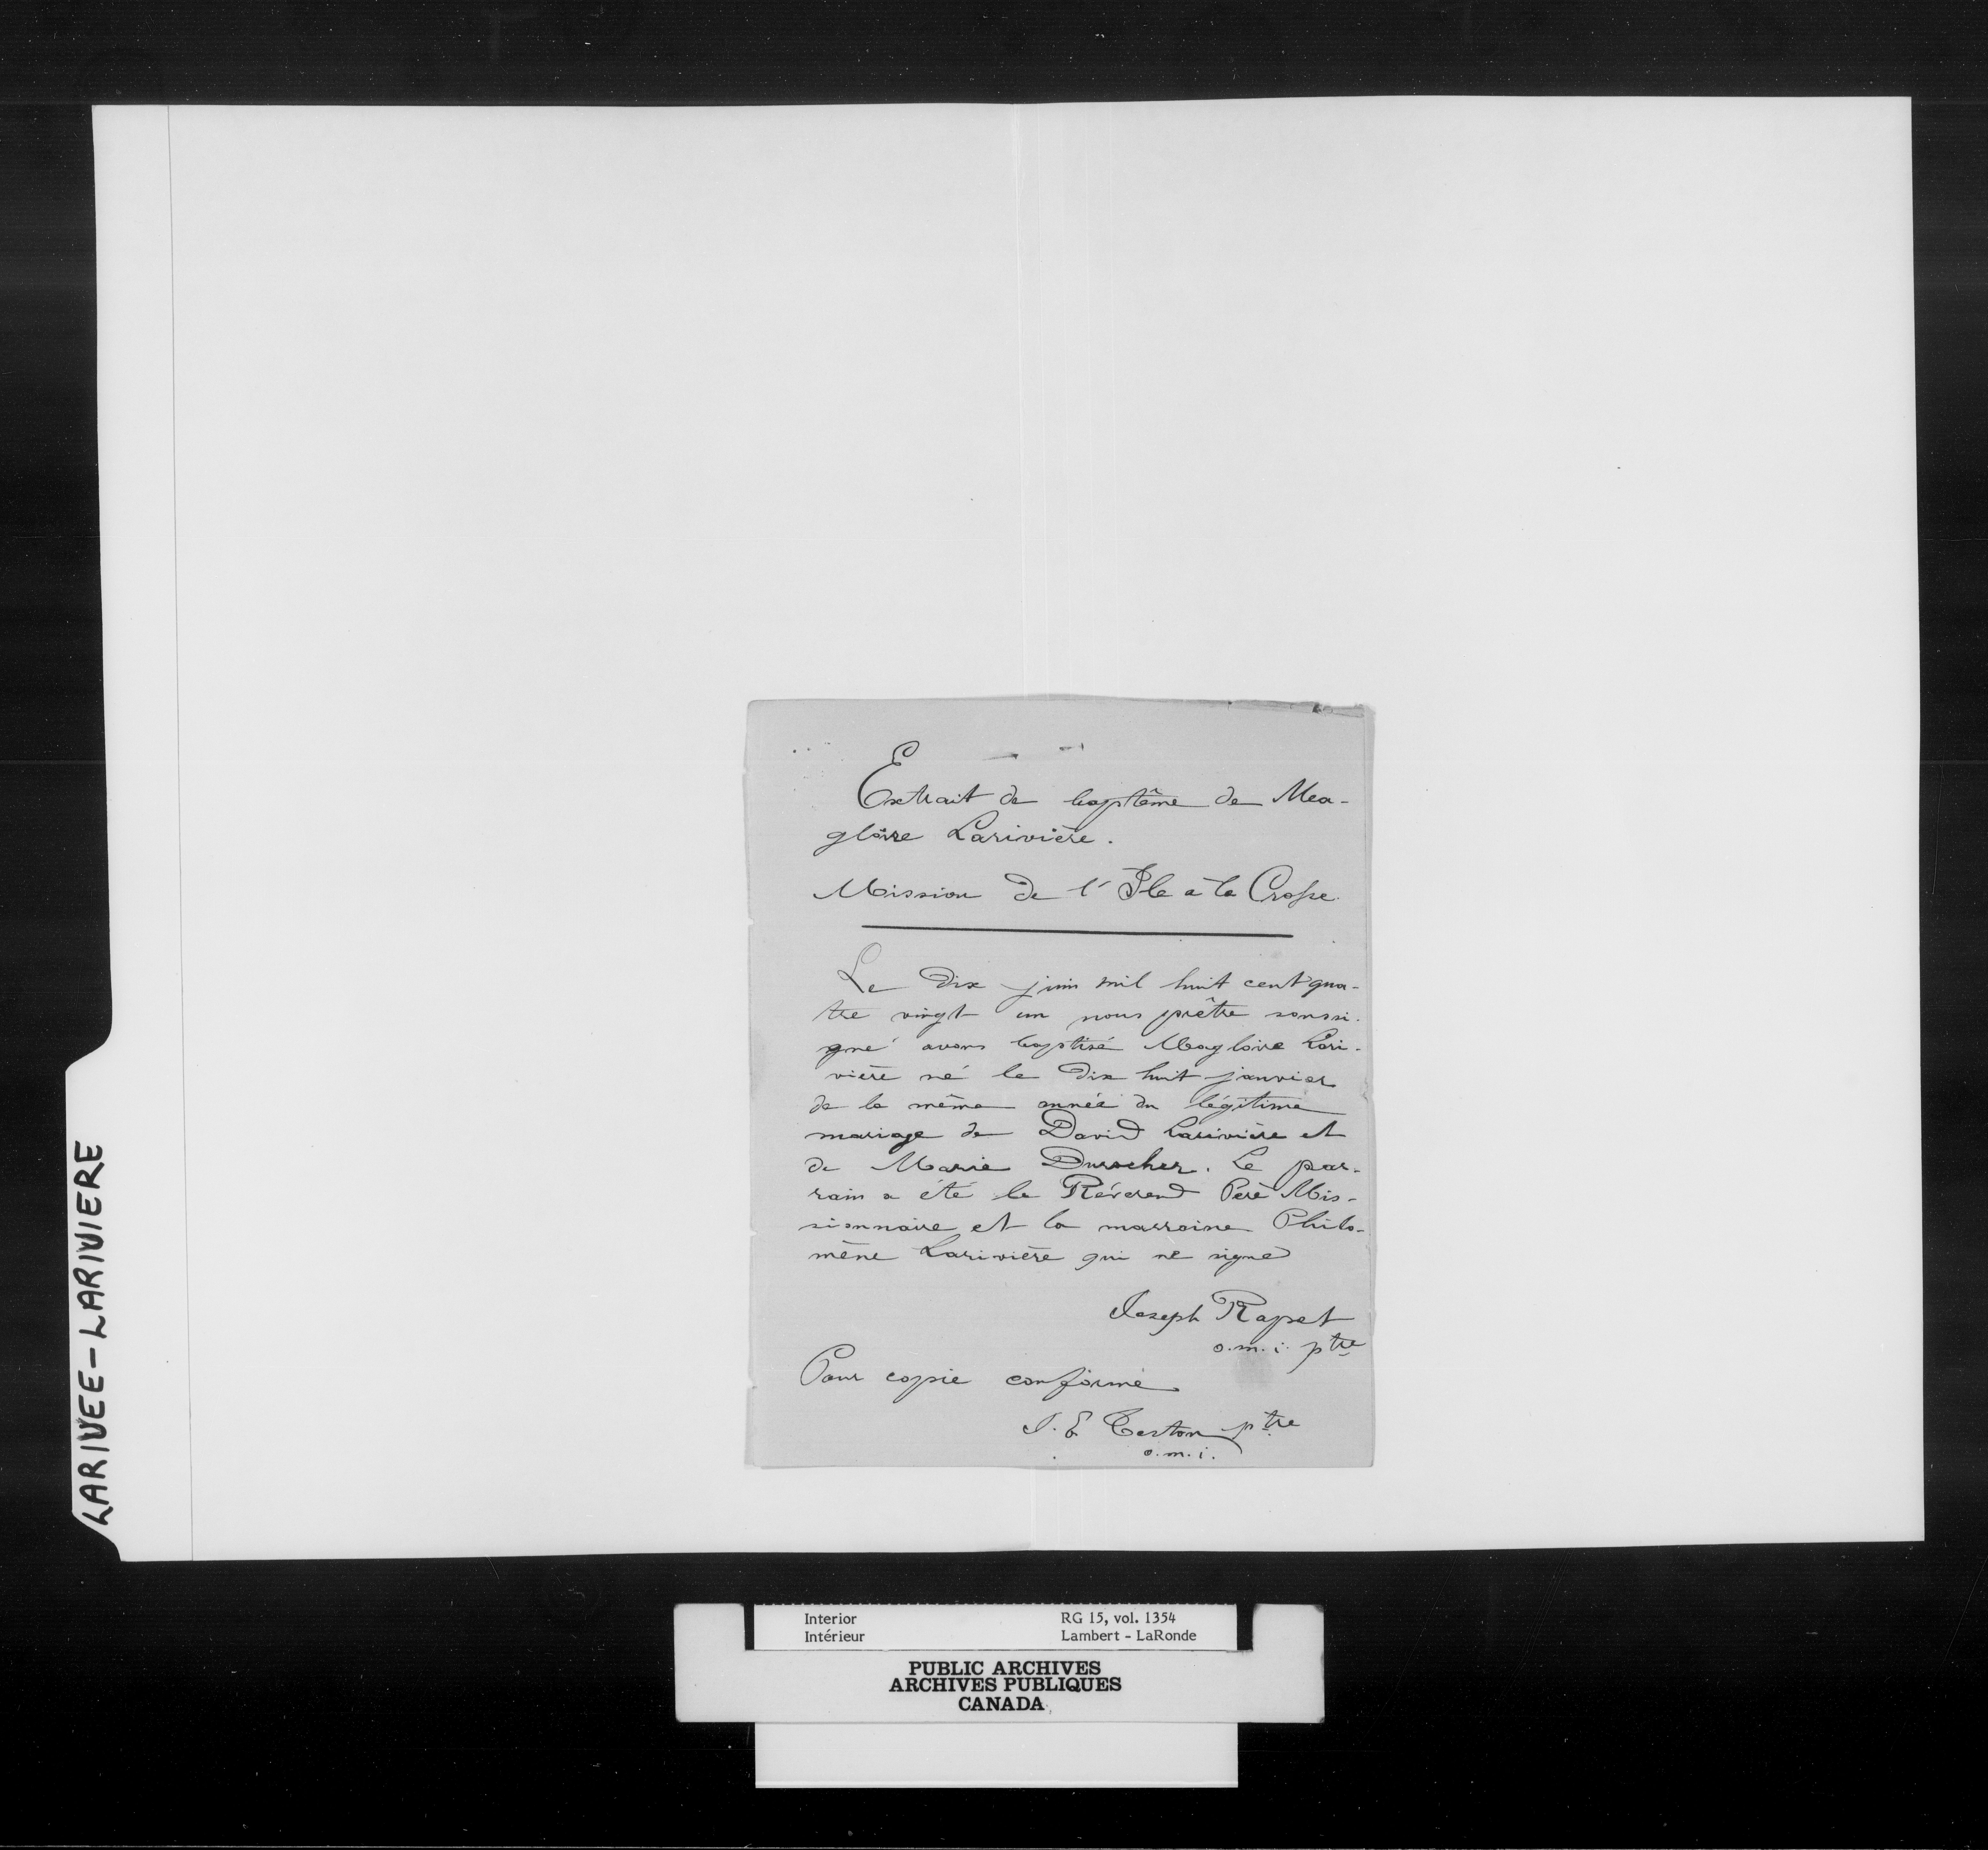 Extrait de baptême de Ma-
gloire Larivière.
Mission de l'Ile à la Crosse.
Le dix juin mil huit cent qua-
tre vingt un nous prêtre soussi-
gné avons baptisé Magloire Lari-
vière né le dix huit janvier
de la même année du légitime
mariage de David Larivière et
de Marie Durocher. Le par-
rain a été le Révérend Père Mis-
sionnaire et la marraine Philo-
mène Larivière qui ne signe
Joseph Rapet
o.m.i. ptre
Pour copie conforme
J. E Teston ptre
o.m.i.
LARIVEE-LARIVIERE
Interior RG 15, vol. 1354
Intérieur Lambert - LaRonde
PUBLIC ARCHIVES
ARCHIVES PUBLIQUES
CANADA